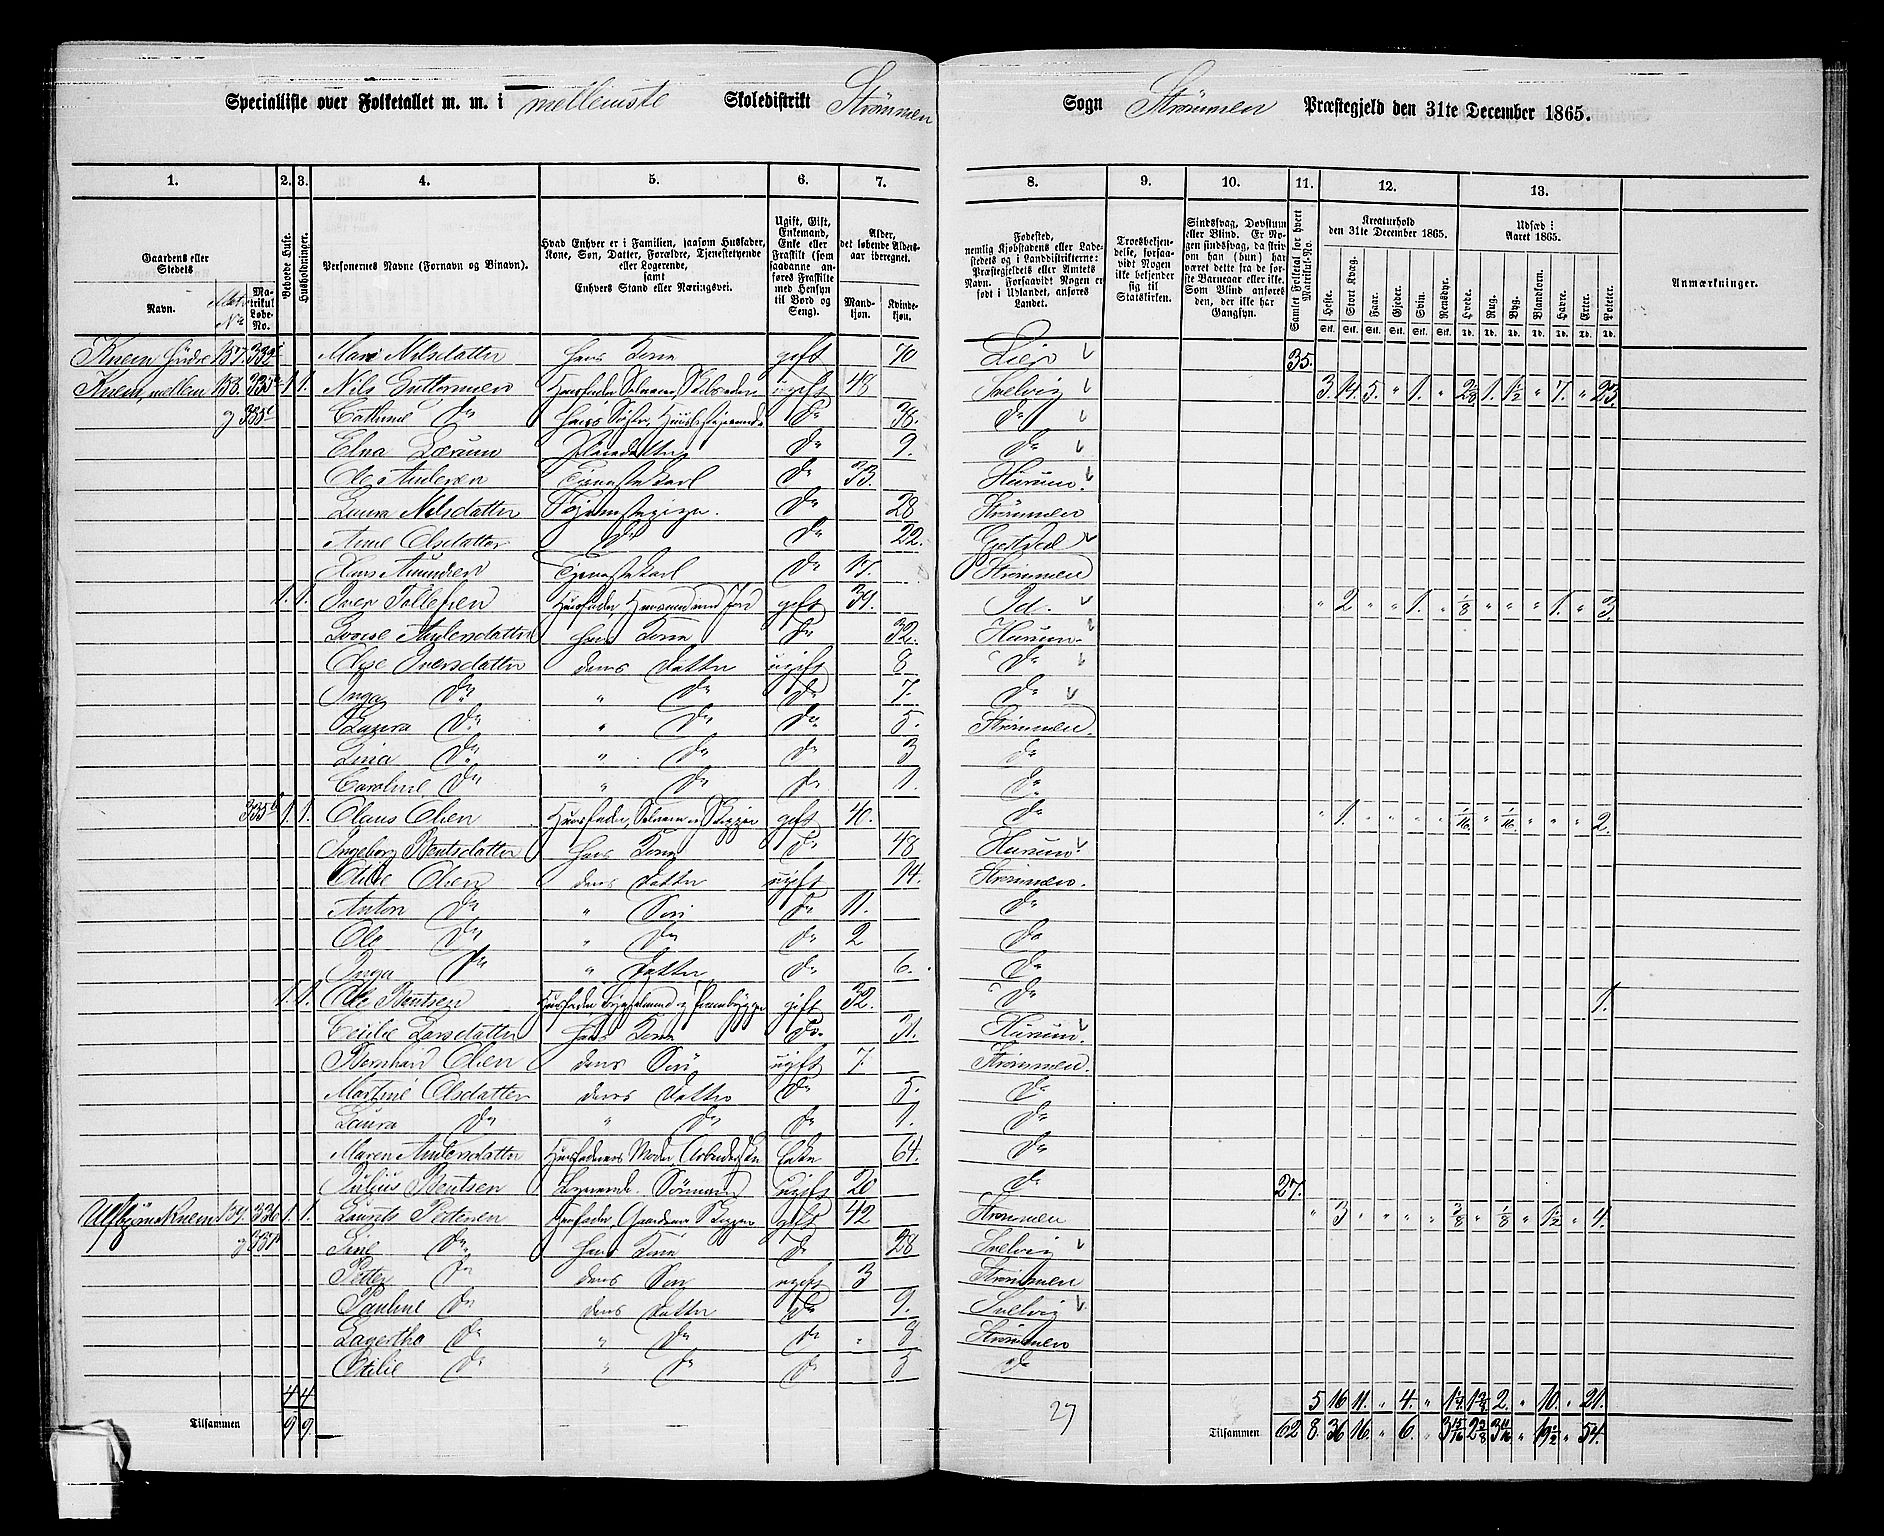 Specialliste over Folketallet m. m. i mellemste Skoledistrikt Strømmen Sogn Strømmen Præstegjeld den 31te December 1865.
1. 2. 3. 4. 5. 6. 7. 8. 9. 10. 11. 12. 13.
Gaardens eller Stedets
Navn.
Matrikul Løbe-No.
Beboede Huse.
Husholdninger.
Personernes Navne (Fornavn og Binavn).
Hvad Enhver er i Familien, saasom Husfader, Kone, Søn, Datter, Forældre, Tjenestetyende eller Logerende, samt Enhvers Stand eller Næringsvei.
Ugift, Gift, Enkemand, Enke eller Fraskilt (som saadanne anføres Fraskilte med Hensyn til Bord og Seng).
Alder, det løbende Alders-aar iberegnet.
Mandkjøn. Kvindekjøn.
Fødested, nemlig Kjøbstadens eller Ladestedets og i Landdistrikterne: Præstegjeldets eller Amtets Navn. Forsaavidt Nogen er født i Udlandet, anføres Landet.
Troesbekjendelse, forsaavidt Nogen ikke bekjender sig til Statskirken.
Sindssvag, Døvstum eller Blind. Er Nogen sindssvag, da skriv om han (hun) har været dette fra de første Barneaar eller ikke. Som Blind anføres den, der ikke har Gangsyn.
Samlet Folketal for hvert Matrikul-No.
Kreaturhold den 31te December 1865.
Heste. Stort Kvæg. Faar. Gjeder. Svin. Rensdyr.
Udsæd i Aaret 1865.
Hvede. Rug. Byg. Blandkorn. Havre. Erter. Poteter.
Anmærkninger.
Knem Søndre 157. Mari Nilsdatter Hans Kone gift 40 Lier 35.
Knem, mellem 158. 1. 1. Nils Guttormsen ugift 48 Svelvig 3. 14. 5. " 1. " 2 1. 1/2 " 7. " 25.
Do 38. Do
Elna Lærum Pleiedatter Do 9. Do
Ole Andersen Tjenestekarl Do 33. Hurum.
Laura Nilsdatter Tjenestepige. Do 28 Strømmen
Anne Olsdatter Do Do 22.
Hans Amundsen Tjenestekarl Do 17. Strømmen
1. 1. Iver Tollefsen Husfader Husmand med Jord gift 39. Id. " 2 " " 1. " 1/8 " " " 1. " 3.
Lovise Andersdatter Hans Kone Do 32. Hurum.
Iversdatter deres Datter ugift 8. Do
Inga Do " Do Do 7. Do
Laura Do " Do Do 5. Strømmen.
Lina Do " Do Do 3 Do
Caroline Do " Do Do 1. Do
335 1. 1. Claus Olsen Husfader, Selveier Skipper gift 40. Do " 1. " " " " 1/16 " 1/16 " " " 2.
Ingeborg Bentsdatter Hans Kone Do 48 Hurum
Olsen deres Datter ugift 14. Strømmen.
Anton Do " Søn Do 11. Do
Ole Do " Do Do 2 Do
Inga Do " Datter Do 6. Do
1. 1. Ole Bentsen gift 32. Do 1.
Cecilie Larsdatter Hans Kone Do 31. Hurum
Bernhard Olsen deres Søn ugift 7. Strømmen.
Martine Olsdatter deres Datter Do 5. Do
Laura Do " Do Do 1. Do
Maren Andersdatter Husfaderens Moder Enke 64. Do
Julius Bentsen Logerende. Sømand ugift 20 Do 27.
159. 336 1. 1. Laurits Pedersen Husfader, Gaardeier Skipper gift 42 Strømmen " 3 " " " " 3/8 " 1/8 " 1 1/2 " 4.
Line Do Hans Kone Do 28 Svelvig
Petter Do deres Søn ugift 3 Strømmen
Pauline Do deres Datter Do 9. Svelvig
Lagertha Do " Do Do 8 Strømmen
Otilie Do " Do Do 5 Do
4 4 5 16 11. " 4. " 2. " 10. " 21.
Tilsammen 9 9. 27 Tilsammen 62 8. 36 16. " 6. " 19 1/2 " 54.